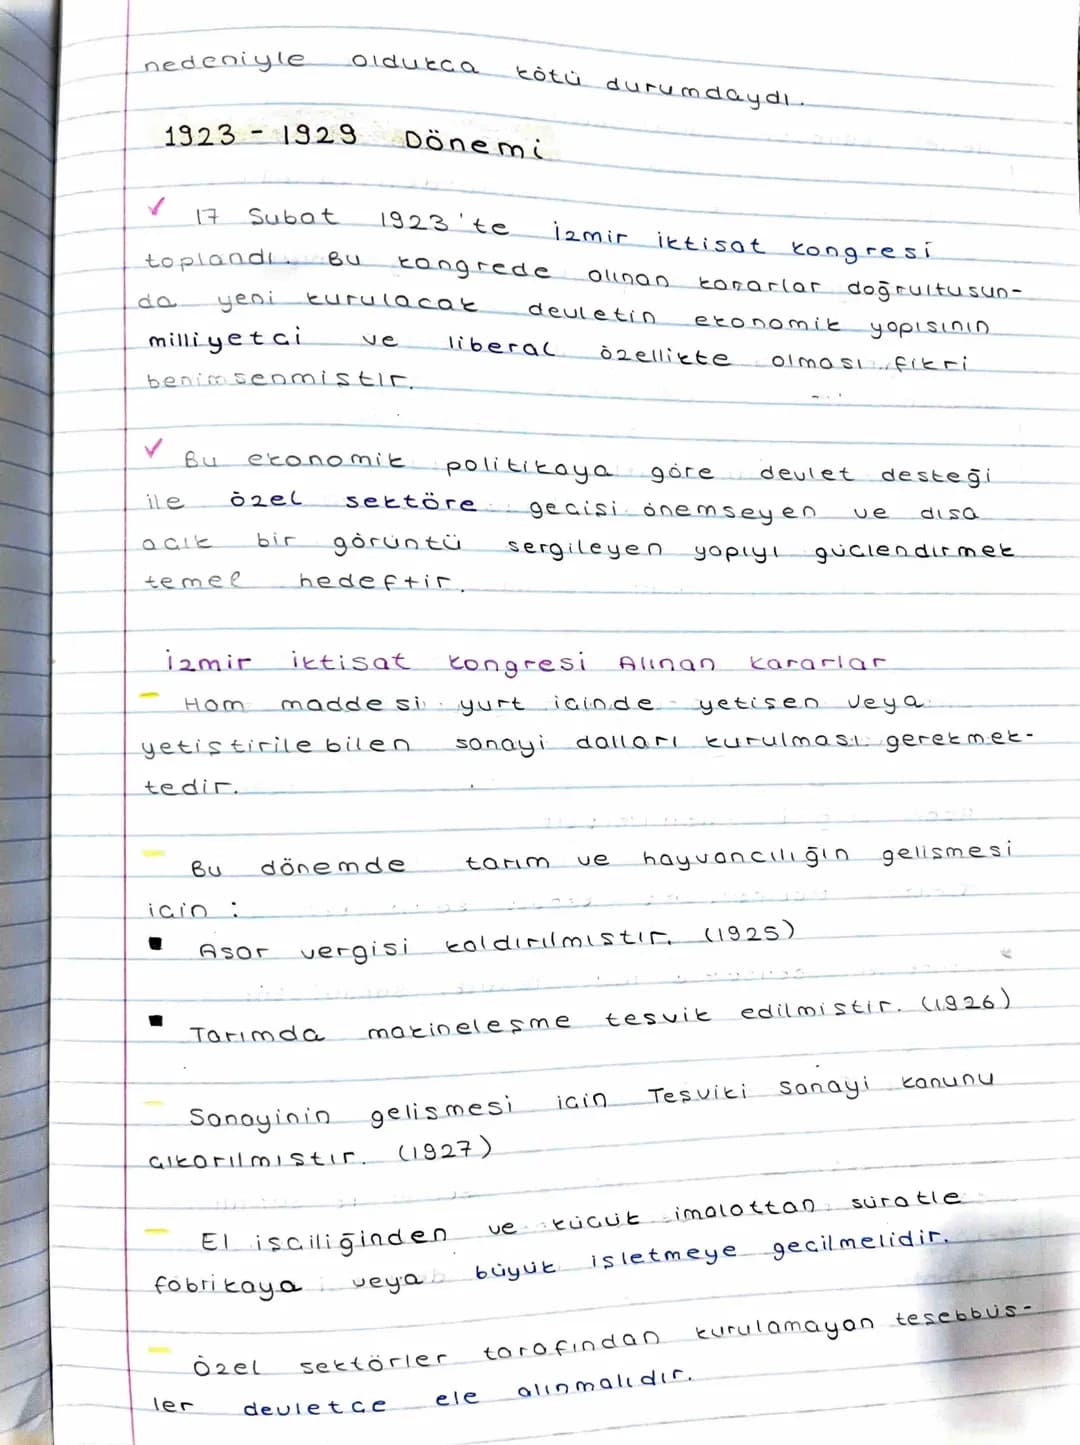 nedeniyle oldukca kötü durumdaydı.
1923 - 1929 Dönemi
✓ 17 Subat 1923'te İzmir iktisat kongresi
toplandı. Bu kongrede alınan kararlar doğrultusun-
da yeni kurulacak devletin ekonomik yapısının
milliyetci ve liberal özellikte olması fikri
benimsenmistir.
✓ Bu ekonomik politikaya göre devlet desteği
ile özel sektöre gecisi önemseyen ve dısa
acık bir görüntü sergileyen yapıyı güclendirmek
temel hedeftir.
İzmir iktisat kongresi Alınan kararlar
- Ham maddesi yurt icinde yetişen veya
yetiştirilebilen sanayi dalları kurulması gerekmek-
tedir.
- Bu dönemde tarım ve hayvancılığın gelismesi
icin :
▪ Asar vergisi kaldırılmıstır. (1925)
▪ Tarımda makineleşme tesvik edilmistir. (1926)
- Sanayinin gelismesi icin Teşviki sanayi kanunu
cıkarılmıstır. (1927)
- El isciliğinden ve kücük imalattan süratle
fabrikaya veya büyük işletmeye gecilmelidir.
- Özel sektörler tarafından kurulamayan tesebbüs-
ler devletce ele alınmalıdır.